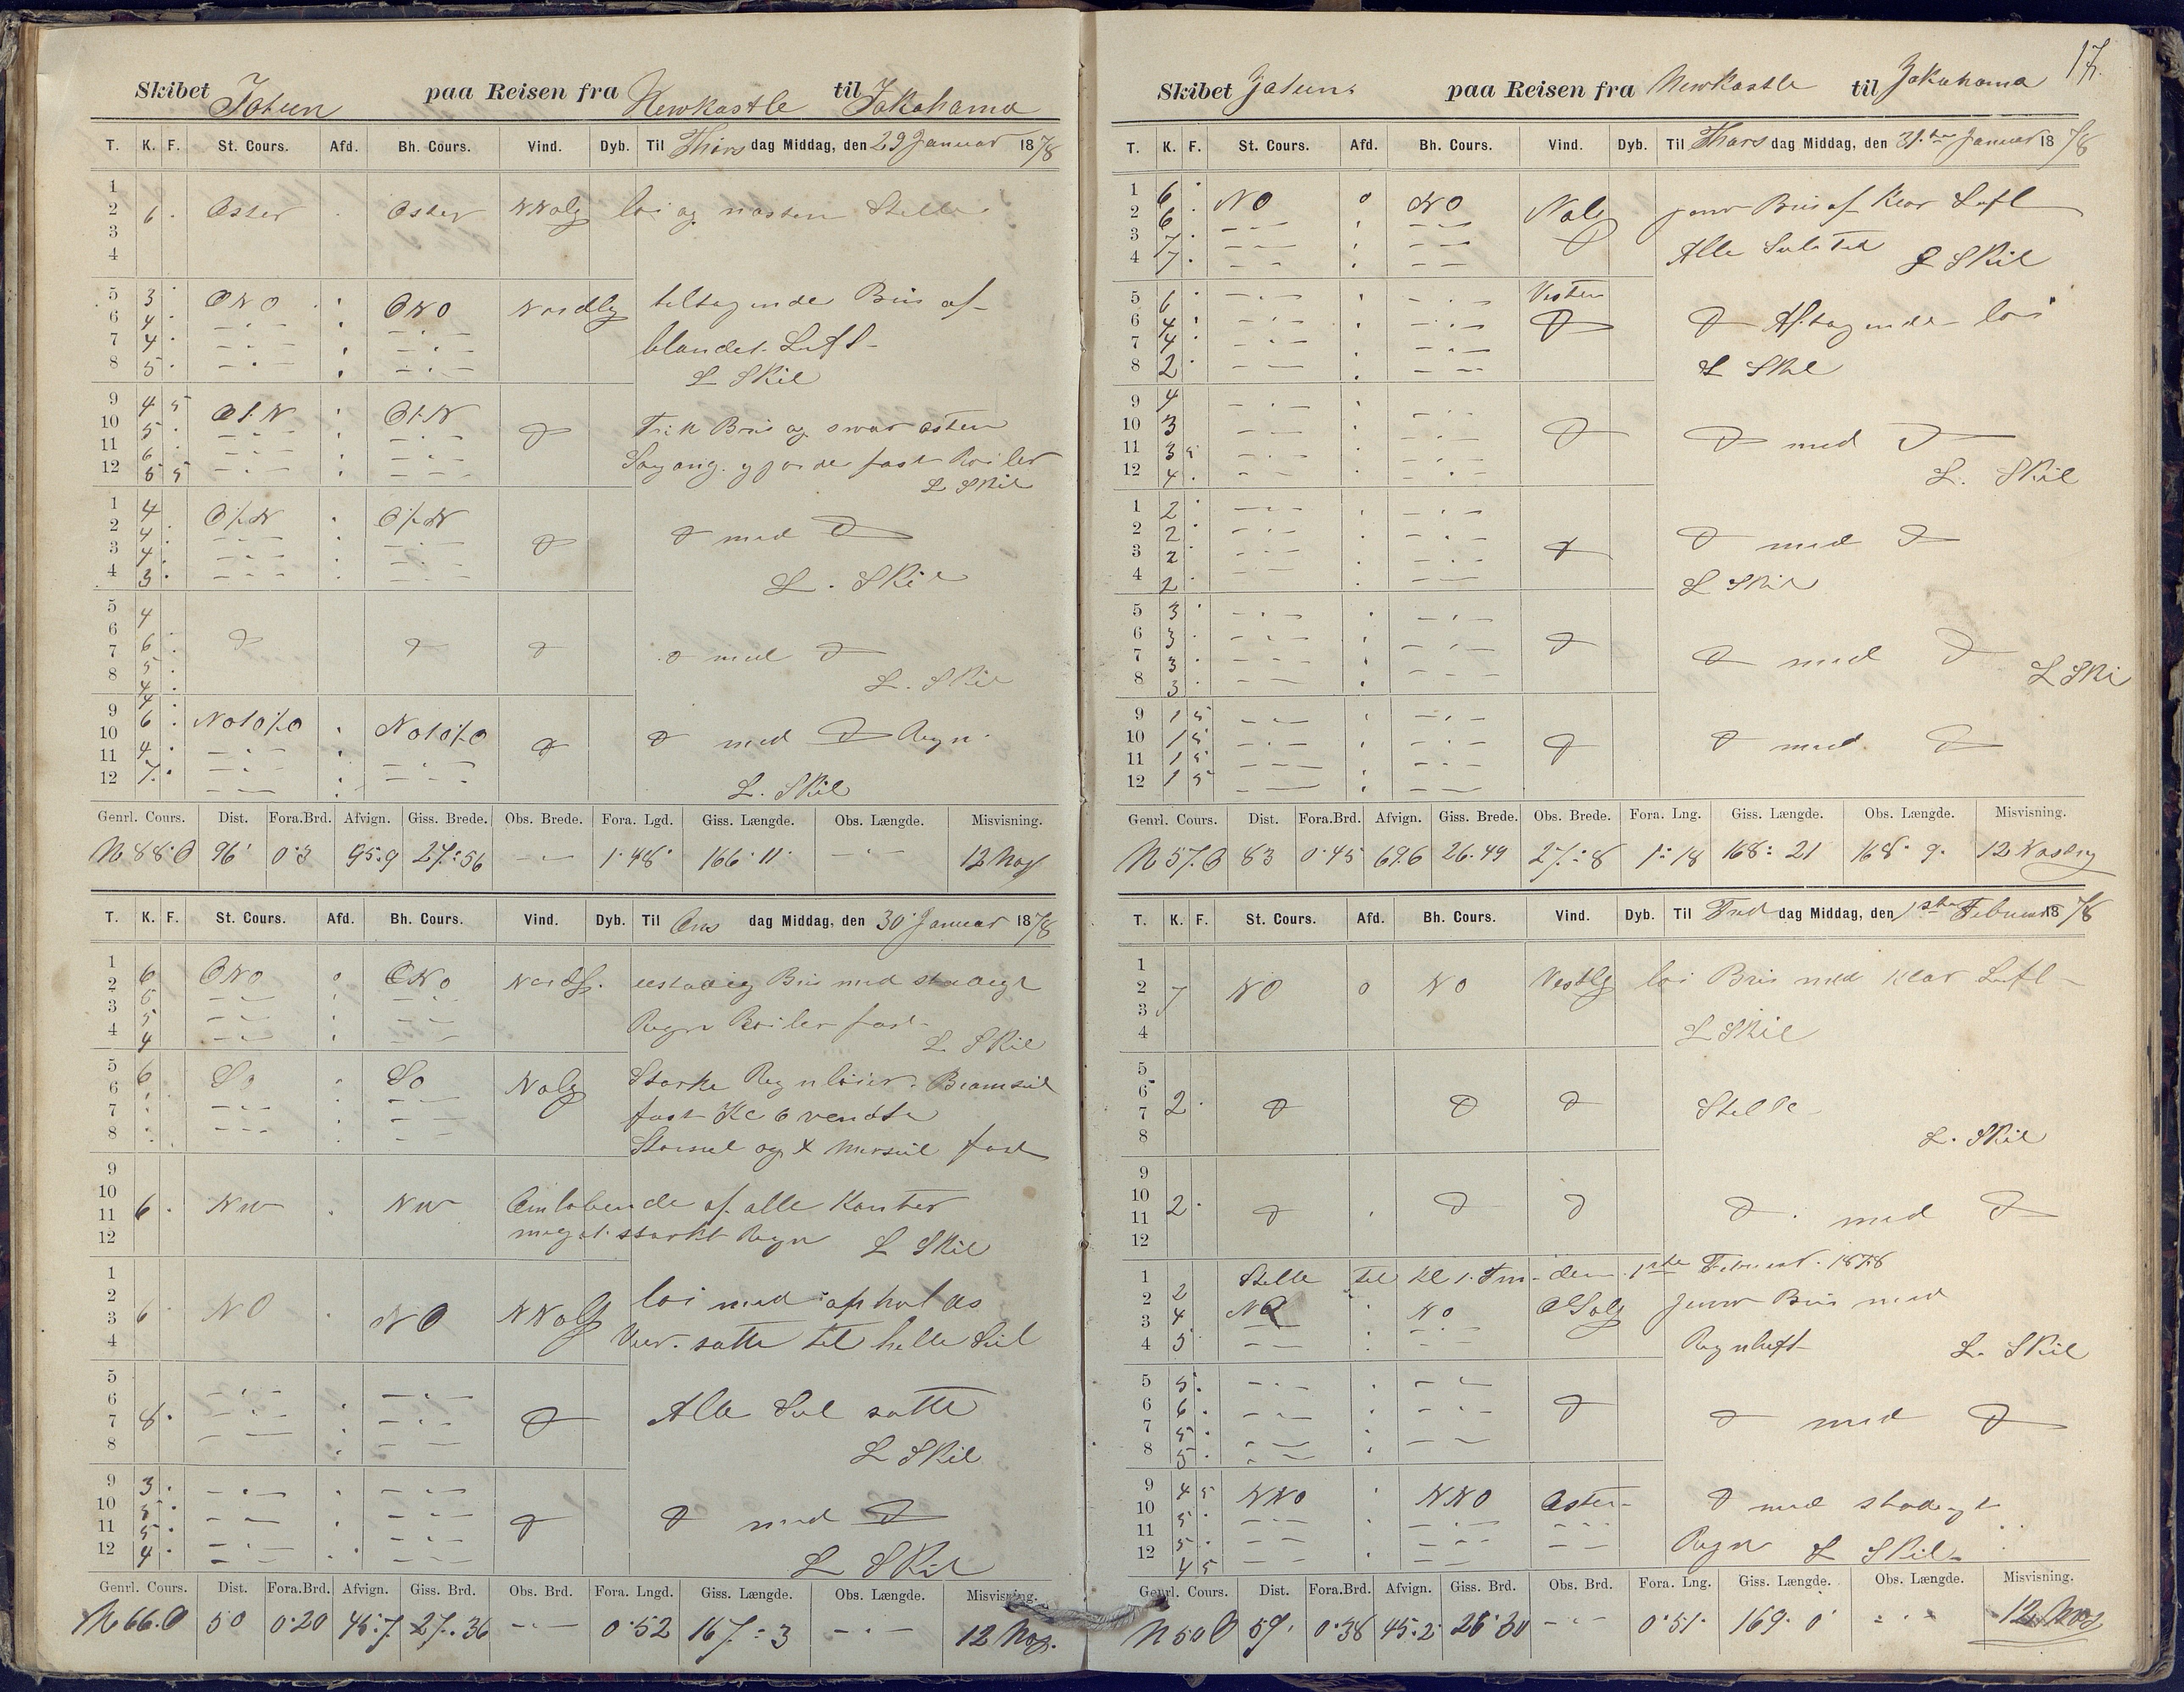 Skibet Jotun paa Reisen fra Newkastle til Jokohama
T. K. F. St. Cours. Afd. Bh. Cours. Vind. Dyb. Til Thirs dag Middag, den 29 Januar 1878
1
2 6 . Oster . Oster NNolg loi og nasten Stelle
3
4
5 3 . ONO . ONO Nordlg teltagende Bris af
6 4 . — . — . — . —
7 4 . — . — . — . — blandet Luft
8 5 . — . — . — . —
L Skil
9 4 5 OtN . OtN D Frisk Bris og svær osten
10 5 . — . — . — . —
11 6 . — . — . — . — Søgang. gjorde fast Roiler
12 5 5 — . — . — . —
L Skil
1 4 . OtN . OtN
2 4 . — . — . — . — D D med D
3 4 . — . — . — . —
4 3 . — . — . — . — L. Skil
5 4
6 6 . D D D D med D
7 5 .
8 4 . L. Skil
9 4
6 . No½O . No½O
10 4 . — . — . — . — D D med D Regn
11 7 . — . — . — . —
12 L. Skil
Genrl. Cours. Dist. Fora.Brd. Afvign. Giss. Brede. Obs. Brede. Fora. Lgd. Giss. Længde. Obs. Længde. Misvisning.
N 88 O 96' 0.3 95.9 27.56 — . — 1.48 166.11 — . — 12 Nog
T. K. F. St. Cours. Afd. Bh. Cours. Vind. Dyb. Til Ons dag Middag, den 30 Januar 1878
1 6 ONO 0 ONO Nordlg. ustadig Bris med stadigt
2 6 — . — . — . —
3 5 — . — . — . — Regn Roiler fast
4 4 — . — . — . — L Skil
5 6 SO . SO Nolg Starke Regnbier. Bramseil
6 . — . — . — . — fast Kl 6 vendte
7 . — . — . — . —
8 . — . — . — . — Storseil og X Merseil fast
9
10 6 . NW . NW Omlobende af alle Kanter
11 meget starkt Regn L Skil
12
1
2 loi med opholds
3 6 . NO . NO NNolg
4 Veir. satte til helle Seil
5 — . — . — . —
6
7 8 . — . — . — . — D Alle Seil satte
8 — . — . — . — L Skil
9 3 . — . — . — . —
10 5 . — . — . — . — D D med D
11 5 . — . — . — . —
12 4 . — . — . — . — L Skil
Genrl. Cours. Dist. Fora.Brd. Afvign. Giss. Brd. Obs. Brd. Fora. Lngd. Giss. Længde. Obs. Længde. Misvisning.
N 66 O 50 0.20 45.7 27.36 — . — 0.52 167.3 — . — 12 Nog.
17.
Skibet Jotun paa Reisen fra Newkastle til Jokohama
T. K. F. St. Cours. Afd. Bh. Cours. Vind. Dyb. Til Thors dag Middag, den 31.te Januar 1878
1 6 . NO 0 NO Nolg jevn Bris af Klar Luft
2 6 . — — . — —
3 7 . — — . — — Alle Seil Til
4 7 . — — . — — L Skil
5 6 . — . — . — . — Vesten
6 4 . — . — . — . — D D Aftagende loi
7 4 . — . — . — . —
8 2 . — — . — — L Skil
9 4 — . — . — . —
10 3 — . — . — . — D D med D
11 3 5 — . — . — . —
12 4 . — . — . — . — L. Skil
1 2 . — . — . — . —
2 2 . — . — . — . — D D med D
3 2 . — . — . — . —
4 2 . — . — . — . — L Skil
5 3 . — . — . — . —
6 3 . — . — . — . — D D med D
7 3 . — . — . — . — L Skil
8 3 . — . — . — . —
9 1 5 — . — . — . —
10 1 5 — . — . — . — D D med D
11 1 5 — . — . — . —
12 1 5 — . — . — . —
Genrl. Cours. Dist. Fora.Brd. Afvign. Giss. Brede. Obs. Brede. Fora. Lng. Giss. Længde. Obs. Længde. Misvisning.
N 57 O 83 0.45 69.6 26.49 27.8 1.18 168.21 168.9. 12 Nostlg
T. K. F. St. Cours. Afd. Bh. Cours. Vind. Dyb. Til Fred dag Middag, den 1ste Februar 1878
1
2 7 NO 0 NO Vestlg loi Bris med klar Luft
3
4 L Skil
5
6
7 2 . D D D Stelle
8 L. Skil
9
10
11 2 . D . D D D med D
12
1 Stelle til Kl 1. Fm. den 1ste Februar. 1878
2 2
3 4 NO . NO OSolg Jevn Bris med
4 5 — — . — — Regnluft L. Skil
5 5 . — . — . — . —
6 6 . — . — . — . — D D med D
7 5 . — . — . — . —
8 5 . — . — . — . —
9 4 5 NNO . NNO Osten D med stadigt
10 5 . — . — . — . — — . —
11 5 . — . — . — . — — . — Regn L Skil
12 4 5 — . — . — . —
Genrl. Cours. Dist. Fora.Brd. Afvign. Giss. Brd. Obs. Brd. Fora. Lng. Giss. Længde. Obs. Længde. Misvisning.
N 50 O 59. 0.38 45.2 26.30 — . — 0.51. 169.0 — . — 12 Nog